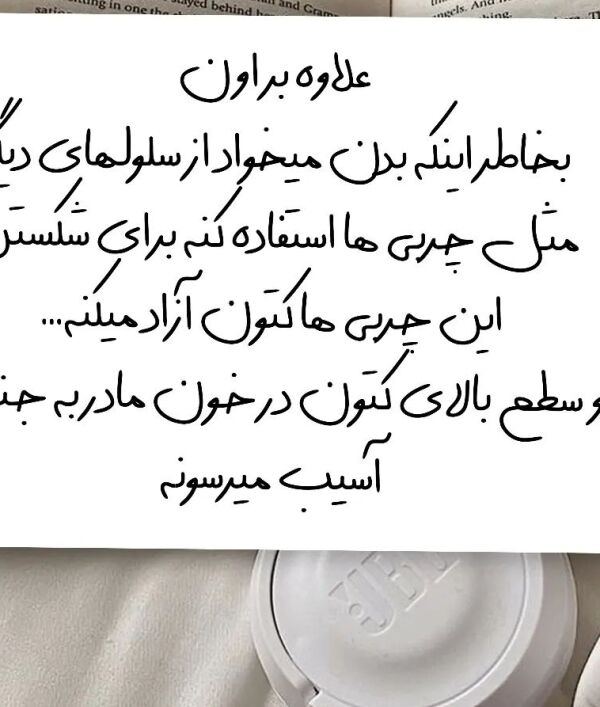 sting in one the stayed behind her and Gram
angels. And
thing.
علاوه بر اون
بخاطر اینکه بدن میخواد از سلولهای دیگ
مثل چربی ها استفاده کنه برای شکستن
این چربی ها کتون آزاد میکنه...
و سطع بالای کتون در خون مادر به جن
آسیب میرسونه
JBL